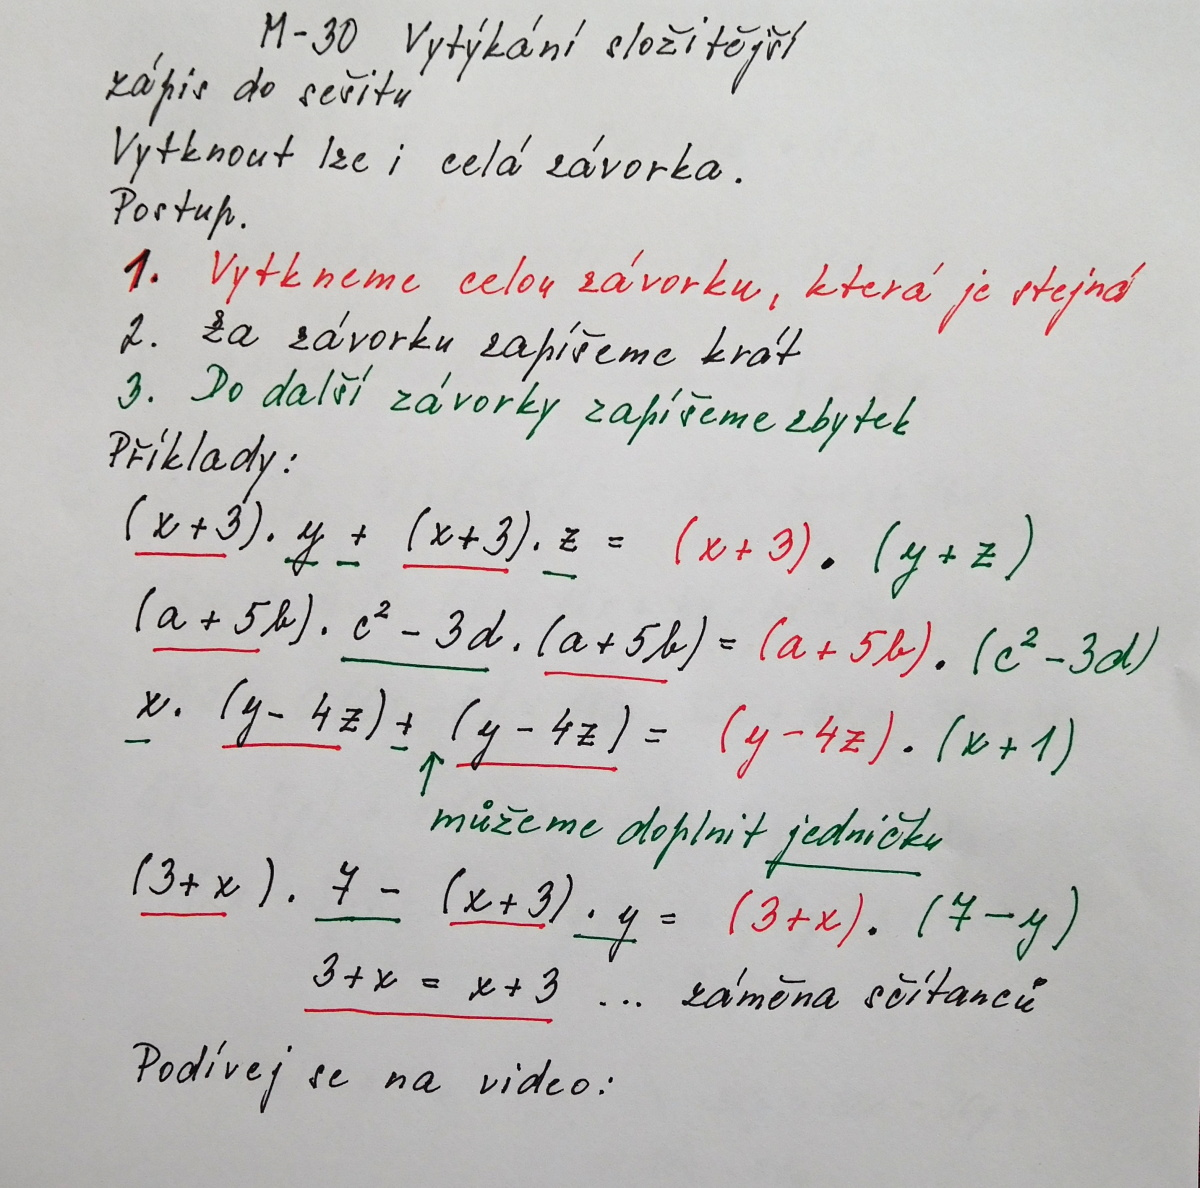 M-30 Vytýkání složitější
zápis do sešitu
Vytknout lze i celá závorka.
Postup.
1. Vytkneme celou závorku, která je stejná
2. Za závorku zapíšeme krát
3. Do další závorky zapíšeme zbytek
Příklady:
(x+3). y + (x+3). z = (x+3). (y+z)
(a+5b). c² - 3d. (a+5b) = (a+5b). (c²-3d)
x. (y-4z) + (y-4z) = (y-4z). (x+1)
↑
můžeme doplnit jedničku
(3+x). 7 - (x+3). y = (3+x). (7-y)
3+x = x+3 ... záměna sčítanců
Podívej se na video: